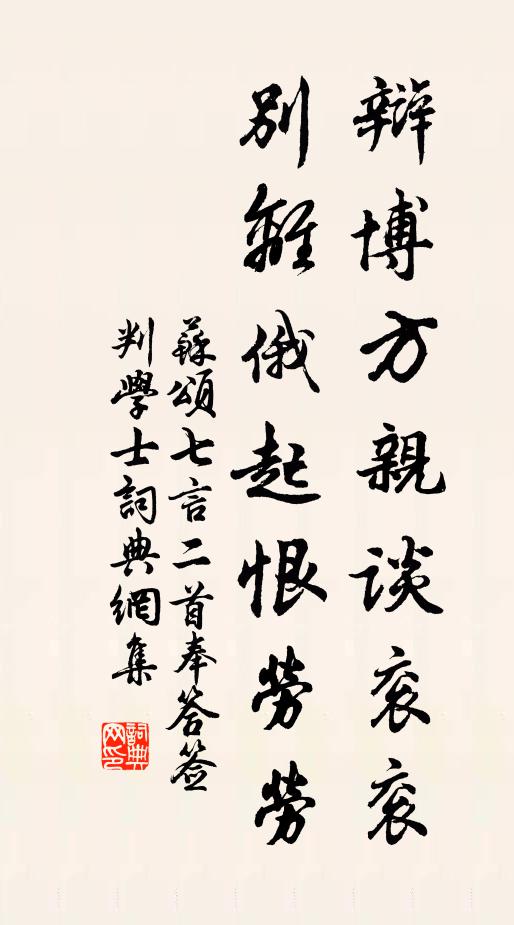 辯博方親談衮衮
別離俄起恨勞勞
蘇頌七言二首奉答签
判學士詞典網集
詞典
网印